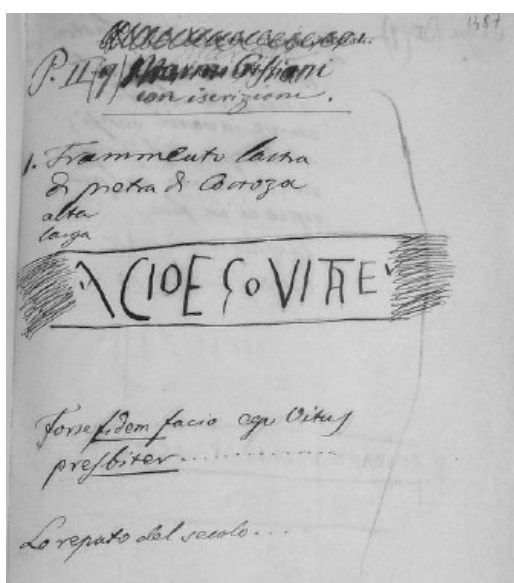 1487
P. II (9) Marmi Cristiani
con iscrizioni.
1. Frammento lastra
di pietra di
alta
larga
ACIOEGOVITHE
Forse fidem facio ego Vitus
presbiter..............
Lo reputo del secolo...